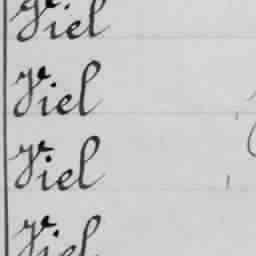 Viel
Viel
Viel
Viel